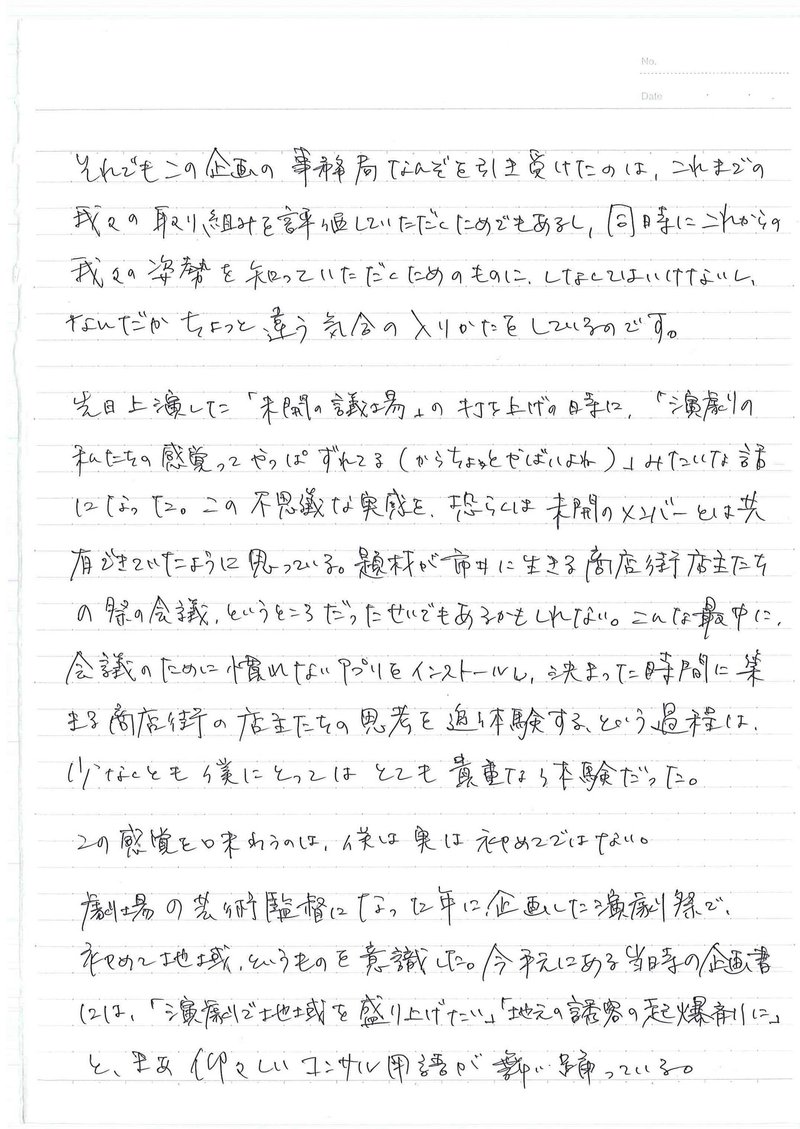 No.
Date
それでもこの企画の事務局なんぞを引き受けたのは、これまでの
我々の取り組みを評価していただくためでもあるし、同時にこれからの
我々の姿勢を知っていただくためのものに、しなくてはいけないし、
なんだかちょっと違う気合の入りかたをしているのです。
先日上演した「未開の議場」の打ち上げの時に、「演劇の
私たちの感覚ってやっぱずれてる(からちょっとやばいよね)」みたいな話
になった。この不思議な実感を、恐らくは未開のメンバーとは共
有できていたように思っている。題材が市井に生きる商店街店主たち
の祭の会議、というところだったせいでもあるかもしれない。こんな最中に、
会議のために慣れないアプリをインストールし、決まった時間に集
まる商店街の店主たちの思考を追体験する、という過程は、
少なくとも僕にとってはとても貴重な体験だった。
この感覚を味わうのは、僕は実は初めてではない。
劇場の芸術監督になった年に、企画した演劇祭で、
初めて地域、というものを意識した。今手元にある当時の企画書
には、「演劇で地域を盛り上げたい」「地元の誘客の起爆剤に」
と、まあ仰々しいコンサル用語が舞い踊っている。